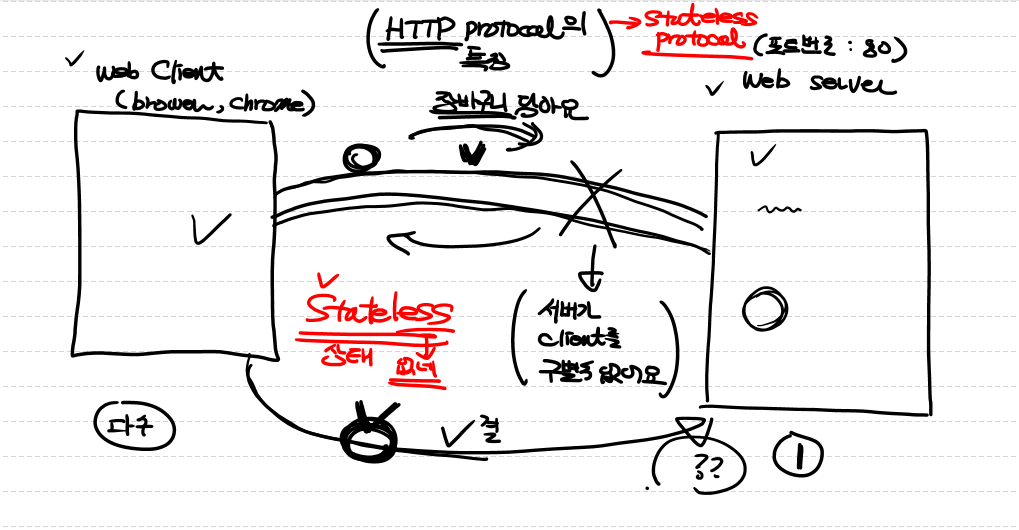 (HTTP protocol의
특징)
→ Stateless
protocol (포트번호 : 80)
✓ Web Client
(browser, chrome)
✓ Web server
장바구니 담아요
Stateless
상태 없네
(서버가
client를
구별할수 없어요)
다수
✓ 결
??
1